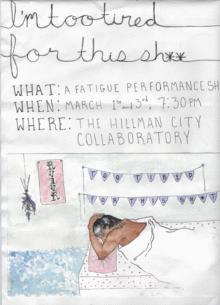 I'm too tired
for this sh**
WHAT: A FATIGUE PERFORMANCE SH
WHEN: MARCH 1st and 3rd, 7:30PM
WHERE: THE HILLMAN CITY
COLLABORATORY
TOO TIRED